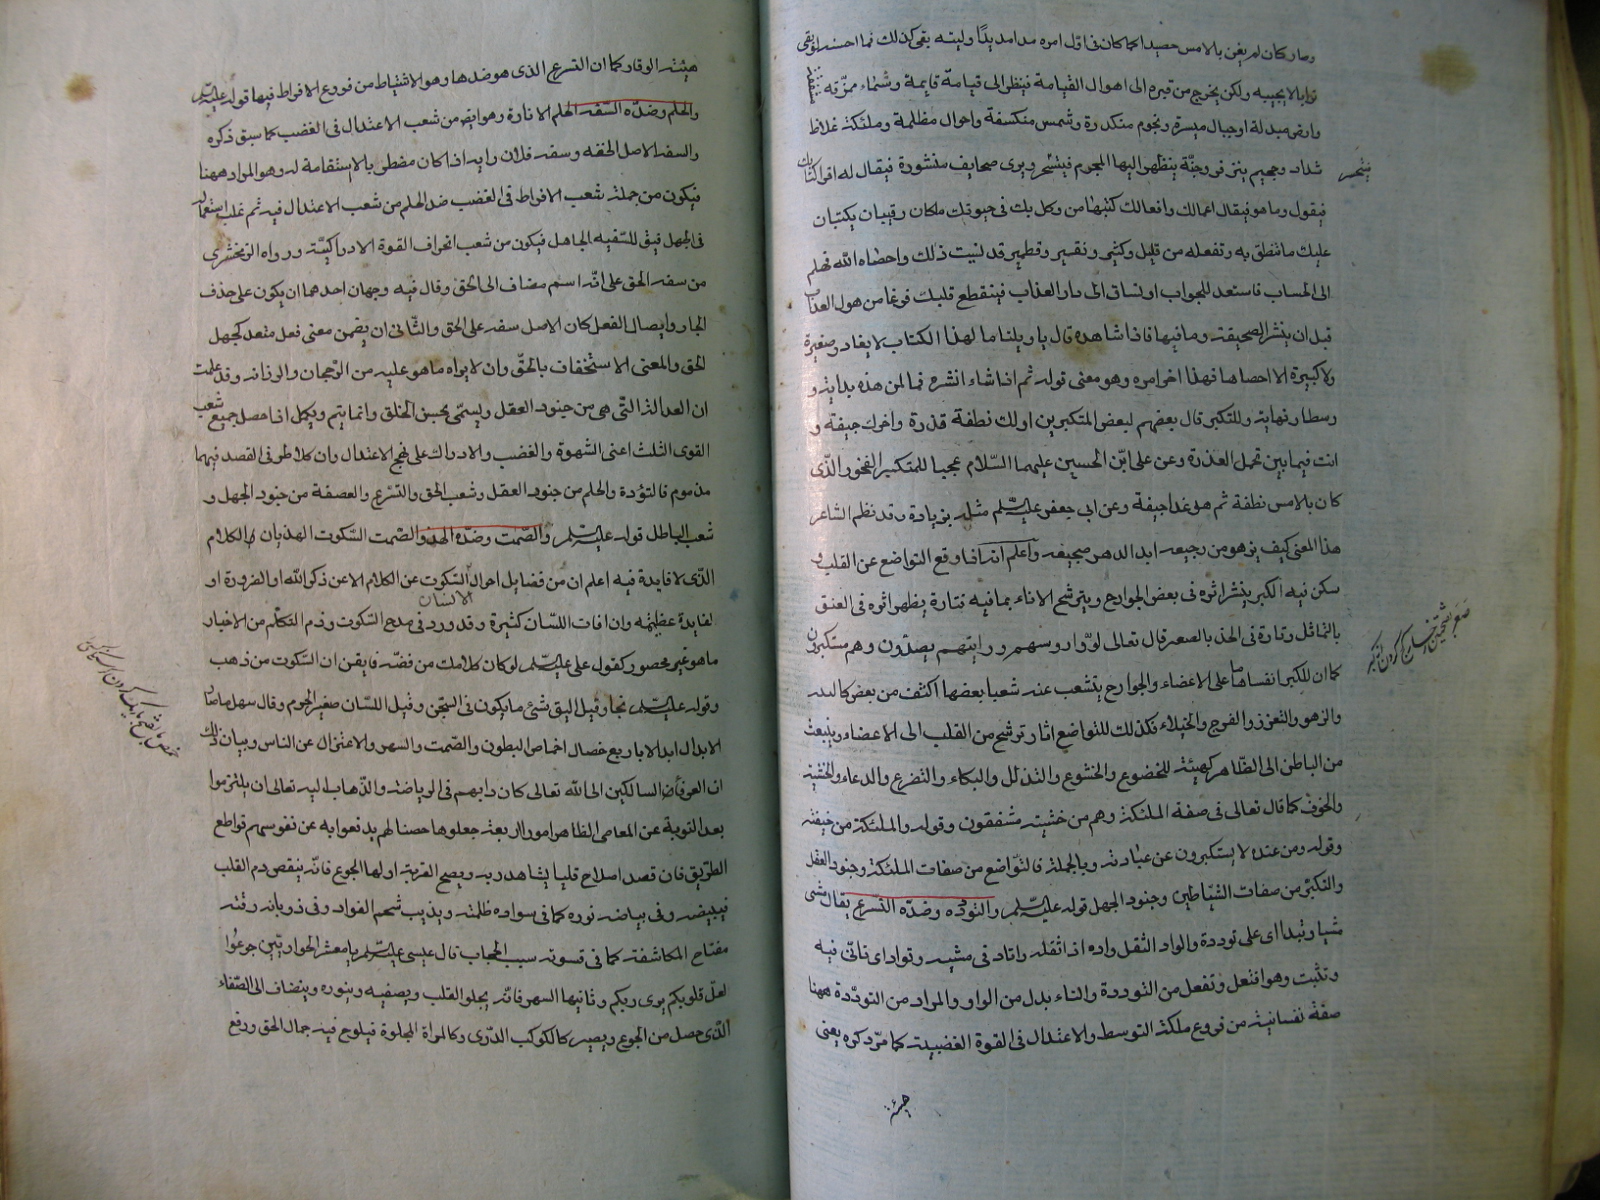 وصار كان لم يغن بالامس حصيدا كما كان فى اول امره مدا مديدًا وليته بقى كذلك فما احسنه لو بقى
ترابا لا يجيبه ولكن يخرج من قبره الى اهوال القيامة فينظر الى قيامة قايمة وسماء ممزقه
وارض مبدلة وجبال مسيرة ونجوم منكدرة وشمس منكسفة واحوال مظلمة وملئكة غلاظ
شداد وجحيم يزفر وجنّة ينظر اليها المجرم فيتحسّر ويرى صحايف منشورة فيقال له اقرا كتابك
فيقول وما هو فيقال اعمالك وافعالك كتبها من وكل بك فى حيوتك ملكان رقيبان يكتبان
عليك ما تنطق به وتفعله من قليل وكثير ونقير وقطمير قد نسيت ذلك واحصاه الله فهلم
الى الحساب فاستعد للجواب او تساق الى دار العذاب فينقطع قلبك فزعا من هول العذاب
قبل ان ينشر الصحيفة وما فيها فاذا شاهده قال يا ويلتنا ما لهذا الكتاب لا يغادر صغيرة
ولا كبيرة الا احصاها فهذا اخر امره وهو معنى قوله ثم اذا شاء انشره فما لمن هذه بدايته و
وسطه ونهايته وللتكبر قال بعضهم لبعض المتكبرين اولك نطفة قذرة واخرك جيفة و
انت فيما بين تحمل العذرة وعن على ابن الحسين عليهما السّلام عجبا للمتكبر الفخور الذّى
كان بالامس نطفة ثم هو غدا جيفة وعن ابى جعفر عليه السّلم مثله بزيادة وقد نظم الشاعر
هذا المعنى كيف يزهو من رجيعه ابد الدهر ضجيعه واعلم انه اذا وقع التواضع عن القلب و
سكن فيه الكبر ينشر اثره فى بعض الجوارح ويترشح الاناء بما فيه فتارة يظهر اثره فى العنق
بالتمائل وتارة فى الخد بالصعر قال تعالى لوّوا رءوسهم ورايتهم يصدّون وهم مستكبرون
كما ان للكبر انفساما على الاعضاء والجوارح يتشعب عنه شعبا بعضها اكثف من بعض كالبذر
والزهو والتعزز والفرح والخيلاء فكذلك للتواضع اثار ترشح من القلب الى الاعضاء وينبعث
من الباطن الى الظاهر كهيئة للخضوع والخشوع والتذلل والبكاء والتضرع والدعاء والخشية
والخوف كما قال تعالى فى صفة الملئكة وهم من خشيته مشفقون وقوله والملئكة من خيفته
وقوله ومن عنده لا يستكبرون عن عبادته وبالجملة فالتّواضع من صفات الملئكة وجنود العقل
والتكبّر من صفات الشّياطين وجنود الجهل قوله عليه السّلم والتّودّه وضدّه التّسرع يقال مشى
مشيا وئيدا اى على تؤددة والواد الثقل واده اذ اثقله واتاد فى مشيه وتواد اى تانّى فيه
وتثبت وهو افتعل وتفعل من التؤددة والتاء بدل من الواو والمراد من التودّدة ههنا
صفة نفسانية من فروع ملكة التوسط والاعتدال فى القوة الغضبية كما مرّ ذكره يعنى
هيئة
يتحسر
هيئة الوقار كما ان التسرع الذى هو ضدها وهو الاشتياط من فروع الافراط فيها قوله عليه السّلم
والحلم وضدّه السّفه الحلم الانارة وهو ايضا من شعب الاعتدال فى الغضب كما سبق ذكره
والسفه الاصل الخفة وسفه فلان رايه اذا كان مضطربا لا استقامة له وهو المراد ههنا
فيكون من جملة شعب الافراط فى الغضب ضد الحلم من شعب الاعتدال فيه ثم غلب استعماله
فى الجهل فيق للسّفيه الجاهل فيكون من شعب انحراف القوة الادراكيّة ورواه الزمخشرى
من سفه الحق على انّه اسم مضاف الى الحقّ وقال فيه وجهان احدهما ان يكون على حذف
الجار وايصال الفعل كان الاصل سفه على الحق والثّانى ان يضمن معنى فعل متعد كجهل
الحق والمعنى الاستخفاف بالحقّ وان لا يراه ما هو عليه من الرّجحان والرزانه وقد علمت
ان العدالة التّى هى من جنود العقل ويسمّى بحسن الخلق وانما يتم ويكمل اذا حصل جميع شعب
القوى الثلث اعنى الشهوة والغضب والادراك على نهج الاعتدال وان كلا طرفى القصد فيهما
مذموم فالتؤدة والحلم من جنود العقل وشعب الحق والتسّرع والعصفة من جنود الجهل و
شعب الباطل قوله عليه السّلم والصّمت وضدّه الهذر والصّمت السّكوت الهذيان والكلام
الذّى لا فايدة فيه اعلم ان من فضايل احوال الانسان السّكوت عن الكلام الا عن ذكر الله او الضرورة او
لفايدة عظيمة وان افات اللّسان كثيرة وقد ورد فى مدح السّكوت وذم التّكلّم من الاخبار
ما هو غير محصور كقول على عليه السّلم لو كان كلامك من فضّه فايقن ان السّكوت من ذهب
وقوله عليه السّلم نجا وقيل اليق شئى ما يكون فى السّجن وقيل اللّسان صغير الجرم وقال سهل ما صار
الابدال ابدالا باربع خصال اخماص البطون والصّمت والسهر والاعتزال عن الناس وبيان ذلك
ان العرفاء السالكين الى الله تعالى كان دابهم فى الرياضة والذّهاب اليه تعالى ان يلتزموا
بعد التوبة عن المعاصى الظاهرا مورا اربعة جعلوها حصنا لهم يدفعوا به عن نفوسهم قواطع
الطّريق فان قصد اصلاح قلبه يشاهد ربه ويصح القربة اولها الجوع فانّه ينقص دم القلب
فيبيضه وفى بياضه نوره كما فى سواده ظلمته ويذيب شحم الفواد وفى ذوبانه رقته
مفتاح المكاشفة كما فى قسوته سبب الحجاب قال عيسى عليه السّلم يا معشر الحواريّين جوعوا
لعلّ قلوبكم يرى ربكم وثانيها السهر فانّه يجلو القلب ويصفيه وينوره وينضاف الى الصّفاء
الذّى حصل من الجوع ويصير كالكوكب الدّرى وكالمراة المجلوة فيلوح فيه جمال الحق ورفع